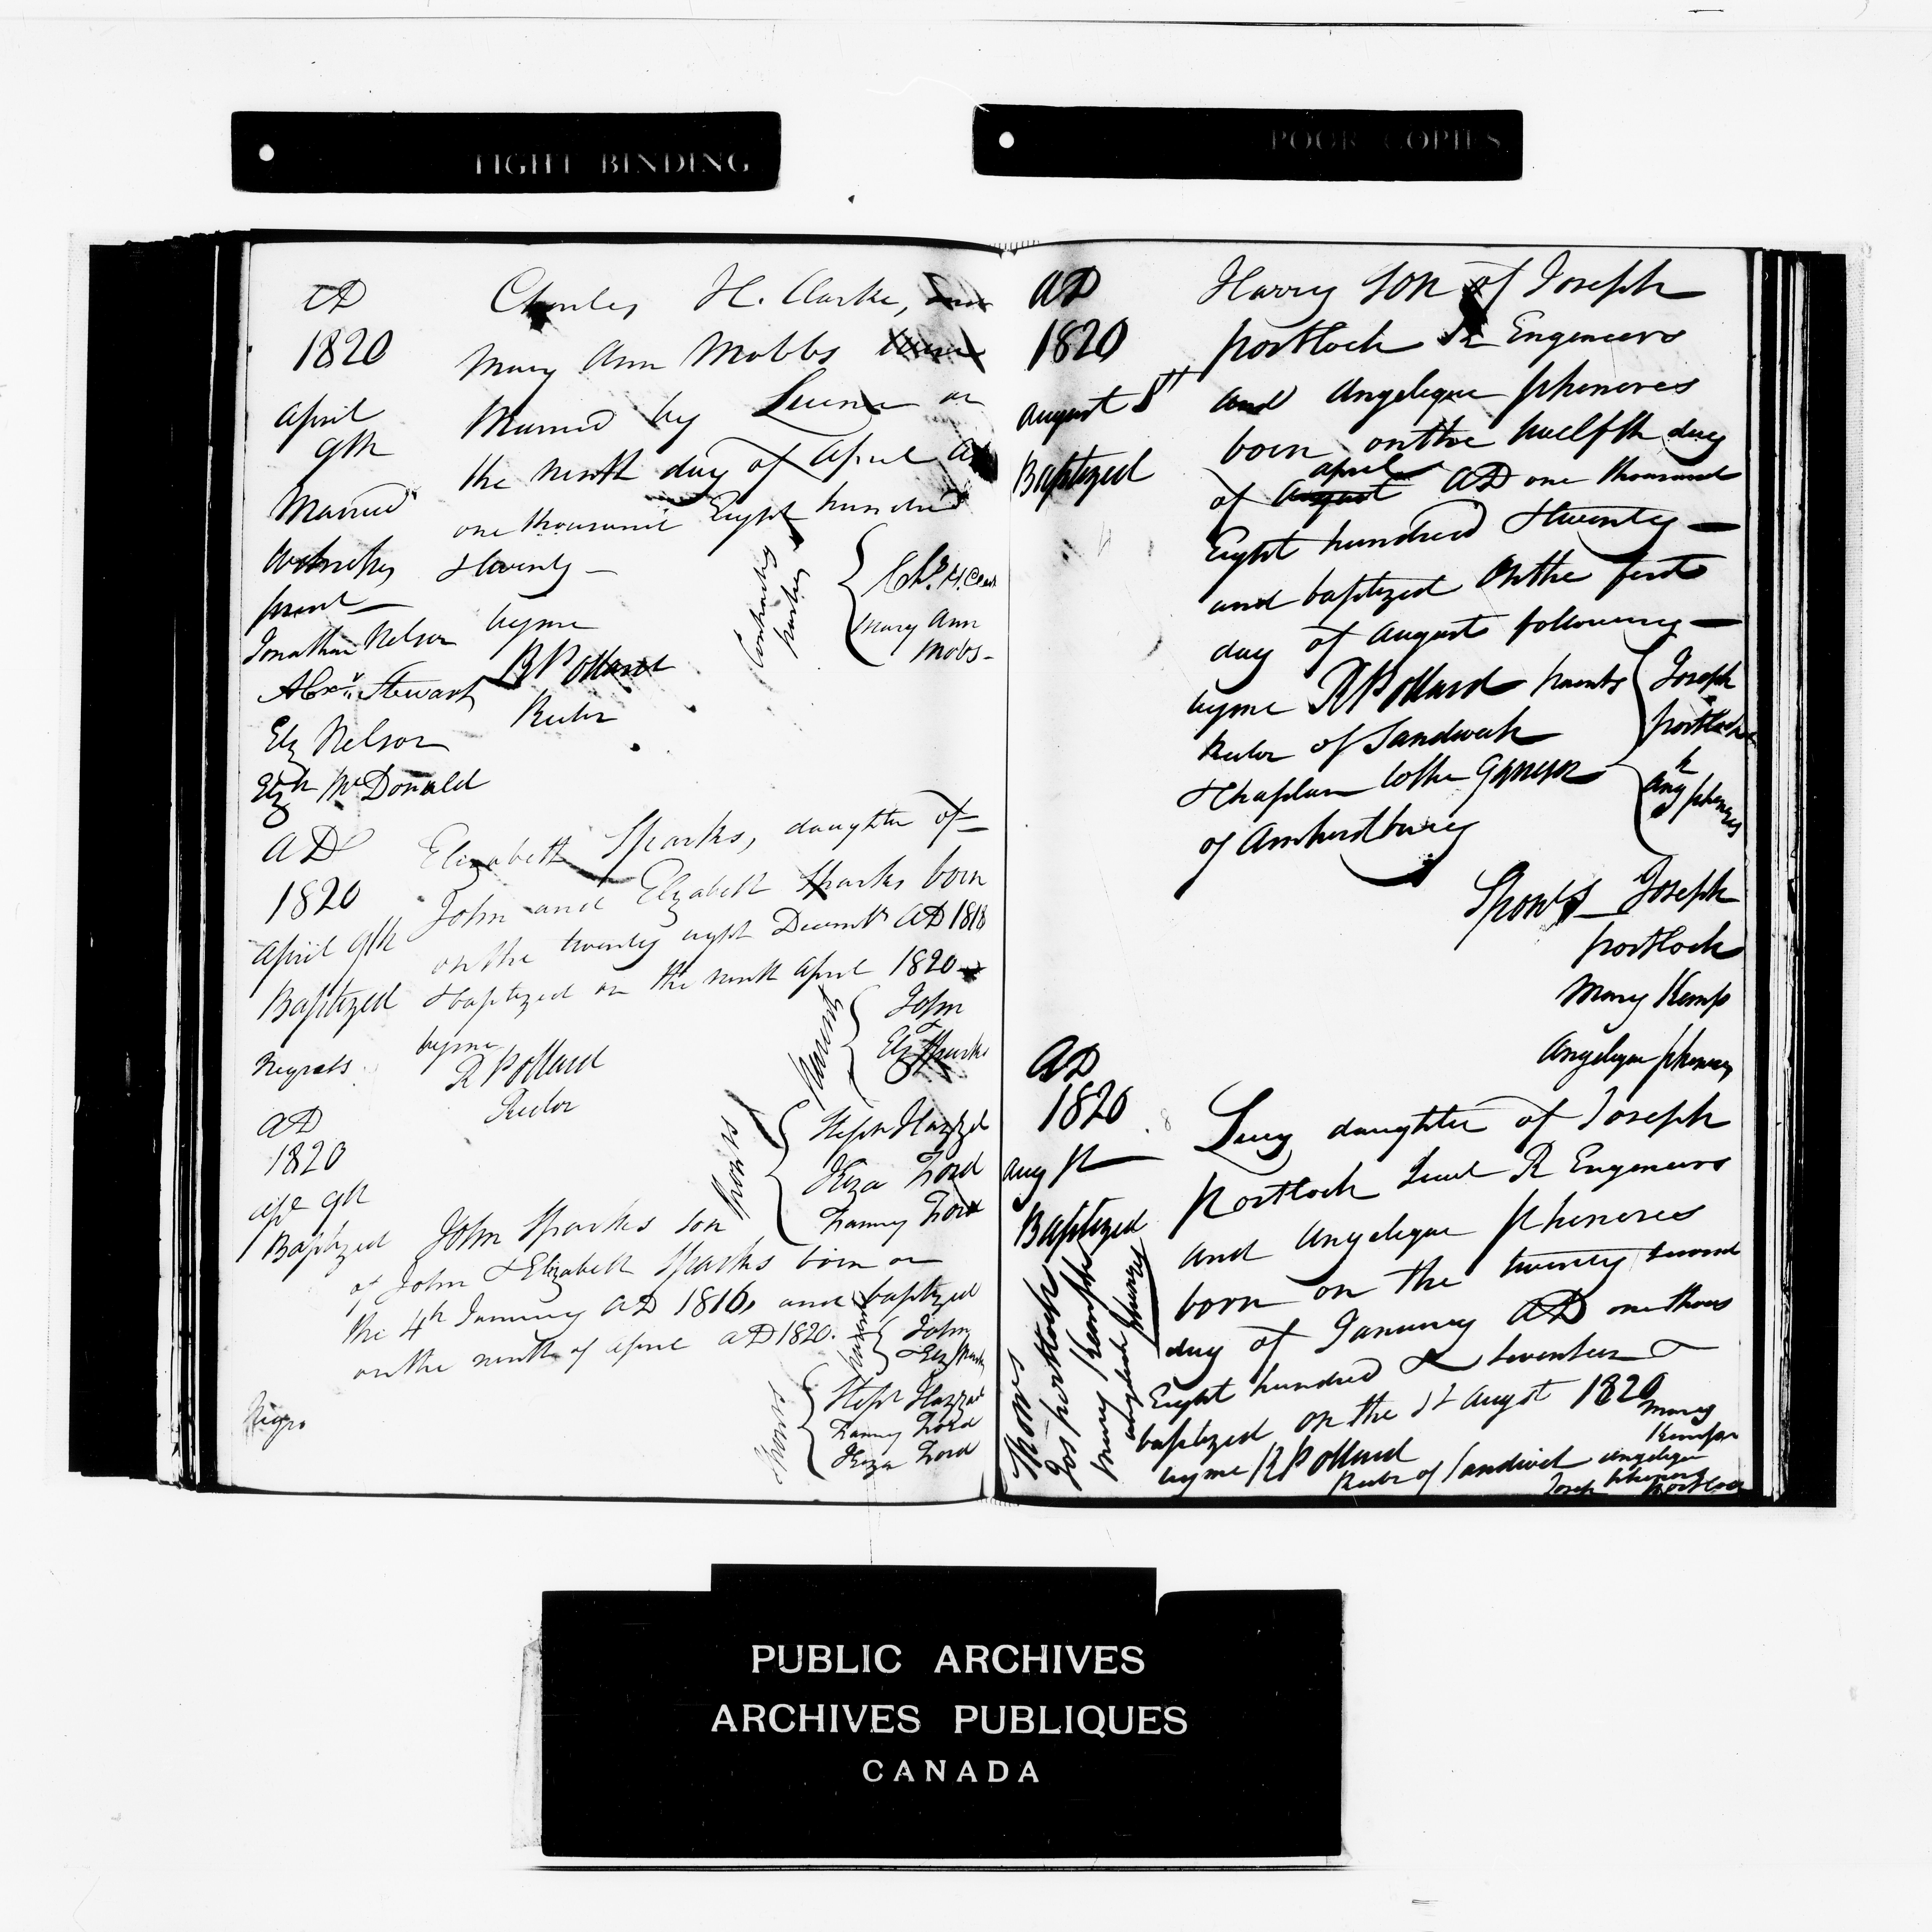 TIGHT BINDING
POOR COPIES
AD
1820
April
9th
Married
Witnesses
present
Jonathan Nelson
Alexr Stewart
Elz Nelson
Elzh McDonald
Charles H. Clarke,
Mary Ann Mobbs
Married by Licence on
the ninth day of April AD
one thousand Eight hundred
& twenty —
by me
R Pollard
Rector
Contracting parties
Chs. H. Clark
Mary Ann
Mobs -
AD
1820
April 9th
Baptized
Negroes
Elizabeth Sparks, daughter of
John and Elizabeth Sparks born
on the twenty eight Decembr AD 1818
& baptized on the ninth April 1820
by me
R Pollard
Rector
parents
John
&
Elz Sparks
Sponrs
Steph Hazzel
Keza Ford
Fanny Ford
AD
1820
apl 9th
Baptized
Negro
John Sparks son
of John & Elizabeth Sparks born on
the 4th January AD 1816, and baptized
on the ninth of April AD 1820.
parents
John
& Elz Sparks
Sponrs
Steph Hazzel
Fanny Ford
Keza Ford
AD
1820
August 1st
Baptized
Harry son of Joseph
portlock R Engeneers
and Angeleque phenores
born on the twelfth day
april
of August AD one thousand
Eight hundred & twenty —
and baptized on the first
day of August following —
by me R Pollard
Rector of Sandwich
& Chaplain to the Garrison
of Amherstburg
parents
Joseph
portlock
&
Ang phenores
Sponrs Joseph
portlock
Mary Kemp
Angeleque phenores
AD
1820
Aug 1st
Baptized
Lucy daughter of Joseph
Portlock Lieut R Engeneers
and Angeleque Phenores
born on the twenty second
day of January AD one thous
Eight hundred & seventeen &
baptized on the 1st Augst 1820
by me R Pollard
Rector of Sandwich
Sponrs
Jos portlock
Mary Kemp
Mary
Kemp
Angeleque
phenores
Joseph Portlock
PUBLIC ARCHIVES
ARCHIVES PUBLIQUES
CANADA